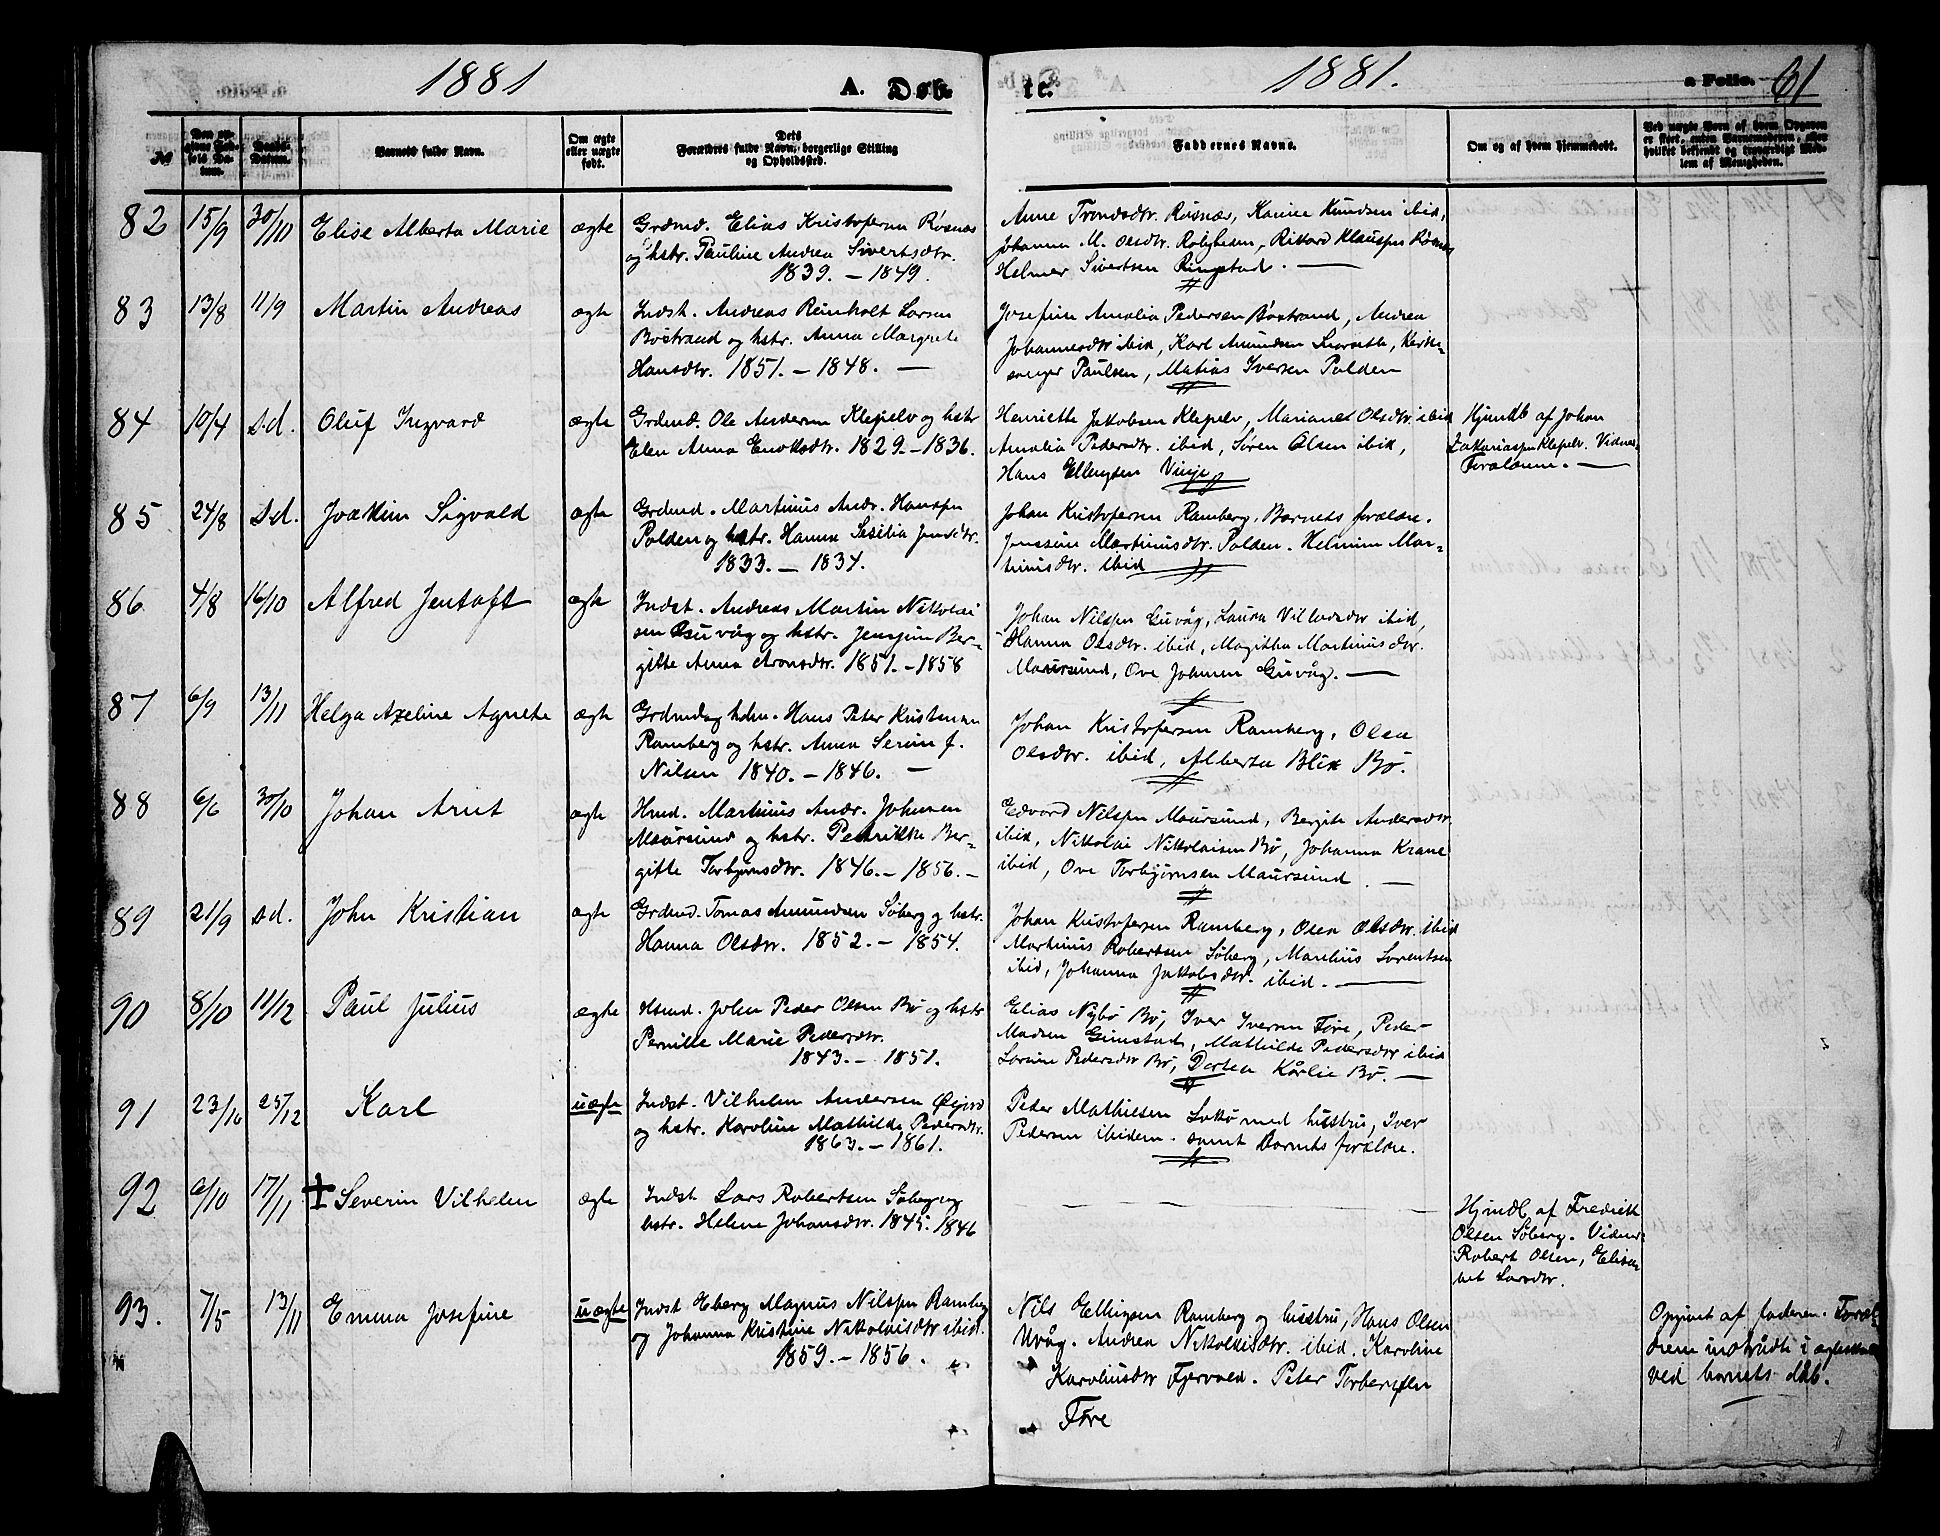 1881
A. Døb
te.
1881.
a Folio. 61
No
Den opgivne Fødsels Datum.
Daabs-Datum.
Barnets fulde Navn.
Om ægte eller uægte født.
Dets Forældres fulde Navn, borgerlige Stilling og Opholdssted.
Faddernes Navne.
Om og af hvem hjemmedøbt.
Ved uægte Børn af hvem Opgaven er skeet, enten Barnemoderen, eller hvilket bekjendt og troværdigt Medlem af Menigheden.
82 15/9 30/10 Elise Alberta Marie ægte
Grdmd. Elias Kristofersen Røsnæs
og hstr. Pauline Andrea Sivertsdtr.
1839. - 1849.
Anne Trondsdtr. Røsnæs, Karine Knudsen ibid,
Johanna M. Olsdtr. Roligheden, Rikard Klausen Røsnæs
Helmer Sivertsen Ringstad. —
83 13/8 11/9 Martin Andreas ægte
Indst. Andreas Reinholt Larsen
Bøstrand og hstr. Anna Margrete
Hansdtr. 1851. - 1848. —
Josefine Amalia Pedersen Bøstrand, Andrea
Johannesdtr ibid, Karl Amundsen, Kirke-
sanger Paulsen, Matias Iversen Polden
84 10/4 S.d. Oluf Ingvard ægte
Grdmd. Ole Andersen Klepelv og hstr
Elen Anna Enoksdtr. 1829. - 1836.
Henriette Jakobsen Klepelv, Mariane Olsdtr. ibid
Amalia Pedersdtr. ibid, Søren Olsen ibid,
Hans Ellingsen Vinje
Hjmdb af Johan
Zakariassen Klepelv. Vidner
Forældrene. —
85 24/8 S.d. Joakim Sigvald ægte
Grdmd. Martinus Andr. Hansen
Polden og hstr. Hanna Sesilia Jensdtr.
1833. - 1834.
Johan Kristofersen Ramberg, Barnets forældre.
Jensine Martinusdtr. Polden. Helmine Mar-
tinusdtr. ibid
86 4/8 16/10 Alfred Jentoft ægte
Indst. Andreas Martin Nikolai
sen Guvåg og hstr. Jensine Ber-
gitte Anna Aronsdtr. 1851. - 1858
Johan Nilsen Guvåg, Laura Villadsdtr ibid,
Hanna Olsdtr. ibid, Magitha Martinusdtr.
Maursund, Ove Johnsen Guvåg. —
87 6/9 13/11 Helga Axeline Agnete ægte
Grdmd og hdm. Hans Peter Kristensen
Ramberg og hstr. Anna Serine f.
Nilsen 1840. - 1846. —
Johan Kristofersen Ramberg, Olea
Olsdtr. ibid, Alberta Blix Bø.
88 6/6 30/10 Johan Arnt ægte
Hmd. Martinus Andr. Johnsen
Maursund og hstr. Pedrikke Ber-
gitte Torbjørnsdtr. 1846. - 1856. —
Edvard Nilsen Maursund, Bergite Andersdtr.
ibid, Nikolai Nikolaisen Bø, Johanna Krane
ibid, Ove Torbjørnsen Maursund. —
89 21/9 S.d. John Kristian ægte
Grdmd. Tomas Amundsen Søberg og hstr.
Hanna Olsdtr. 1852. - 1854.
Johan Kristofersen Ramberg, Olea Olsdtr. ibid
Martinus Robertsen Søberg, Marelius Lorentsen
ibid, Johanna Jakobsdtr. ibid. —
90 8/10 11/12 Paul Julius ægte
Hsmd. John Peder Olsen Bø og hstr
Pernille Marie Pedersdtr.
1843. - 1851.
Elias Nybø Bø, Iver Iversen Føre, Peder
Madsen Gimstad, Mathilde Pedersdtr ibid
Lorine Pedersdtr Bø, Dortea Kårlie Bø. —
91 23/10 25/12 Karl uægte
Indst. Vilhelm Andersen
og hstr. Karoline Mathilde Pedersdtr.
1863. - 1861.
Peder Mathiesen Lokø med hustru, Iver
Pedersen ibidem. samt Barnets forældre.
92 6/10 17/11 + Severin Vilhelm ægte
Indst Lars Robertsen Søberg og
hstr. Helene Johansdtr. 1845. 1846
Hjmdb af Fredrik
Olsen Søberg. Vidner
Robert Olsen, Elisa-
bet Larsdtr.
93. 7/5 13/11 Emma Josefine uægte
Indst Eberg Magnus Nilsen Ramberg
og Johanna Kristine Nikolaisdtr ibid.
1859. - 1856.
Nils Ellingsen Ramberg og hustru, Hans Olsen
Uvåg. Andrea Nikolaisdtr. ibid. Karoline
Karoliusdtr Fjærvold. Peter Torbersen
Føre
Opgivet af faderen. Foræl-
drene indtrådte i ægteskab
ved barnets dåb.